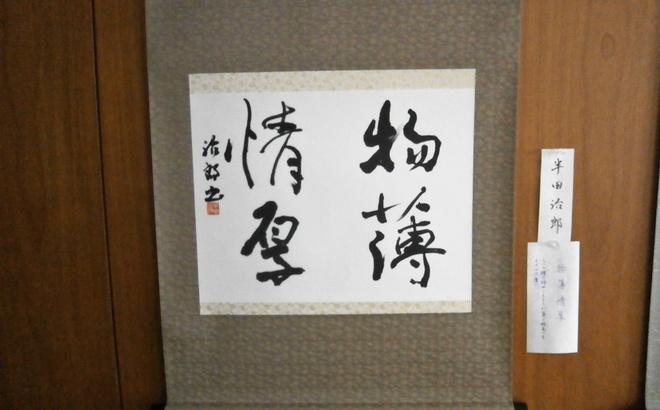 物薄
情厚
治郎書
半田治郎
物薄情厚